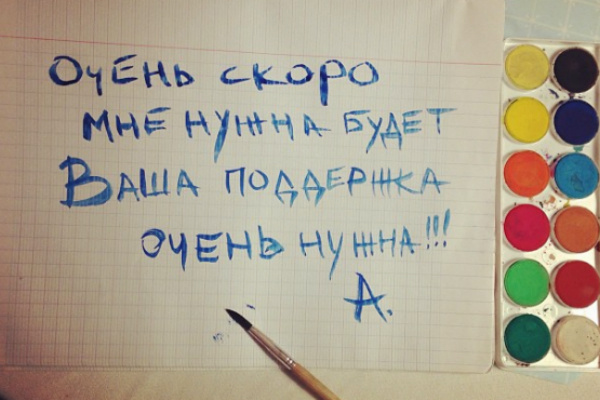 Очень скоро
мне нужна будет
Ваша поддержка
очень нужна!!!
А.